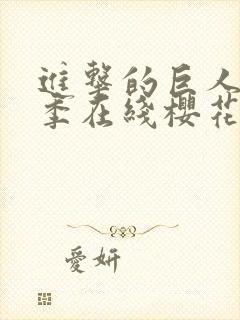 進擊的巨人
季在綫櫻花
愛妍